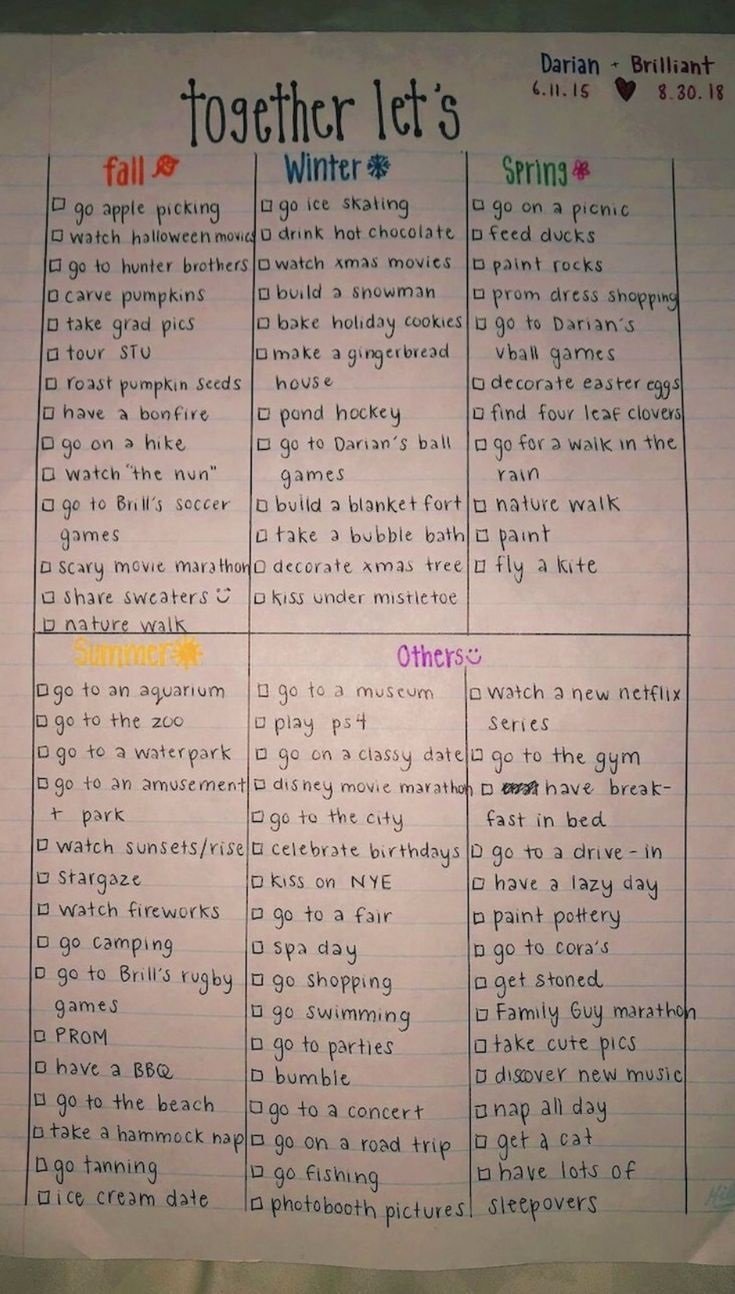 Darian + Brilliant
6.11.15 8.30.18
together let's
fall
go apple picking
watch halloween movies
go to hunter brothers
carve pumpkins
take grad pics
tour STU
roast pumpkin seeds
have a bonfire
go on a hike
watch "the nun"
go to Brill's soccer
games
scary movie marathon
share sweaters
nature walk
Winter
go ice skating
drink hot chocolate
watch xmas movies
build a snowman
bake holiday cookies
make a gingerbread
house
pond hockey
go to Darian's ball
games
build a blanket fort
take a bubble bath
decorate xmas tree
kiss under mistletoe
Spring
go on a picnic
feed ducks
paint rocks
prom dress shopping
go to Darian's
vball games
decorate easter eggs
find four leaf clovers
go for a walk in the
rain
nature walk
paint
fly a kite
Summer
go to an aquarium
go to the zoo
go to a waterpark
go to an amusement
+ park
watch sunsets/rise
stargaze
watch fireworks
go camping
go to Brill's rugby
games
PROM
have a BBQ
go to the beach
take a hammock nap
go tanning
ice cream date
Others
go to a museum
play ps4
go on a classy date
disney movie marathon
go to the city
celebrate birthdays
kiss on NYE
go to a fair
spa day
go shopping
go swimming
go to parties
bumble
go to a concert
go on a road trip
go fishing
photobooth pictures
watch a new netflix
series
go to the gym
have break-
fast in bed
go to a drive-in
have a lazy day
paint pottery
go to cora's
get stoned
Family Guy marathon
take cute pics
discover new music
nap all day
get a cat
have lots of
sleepovers